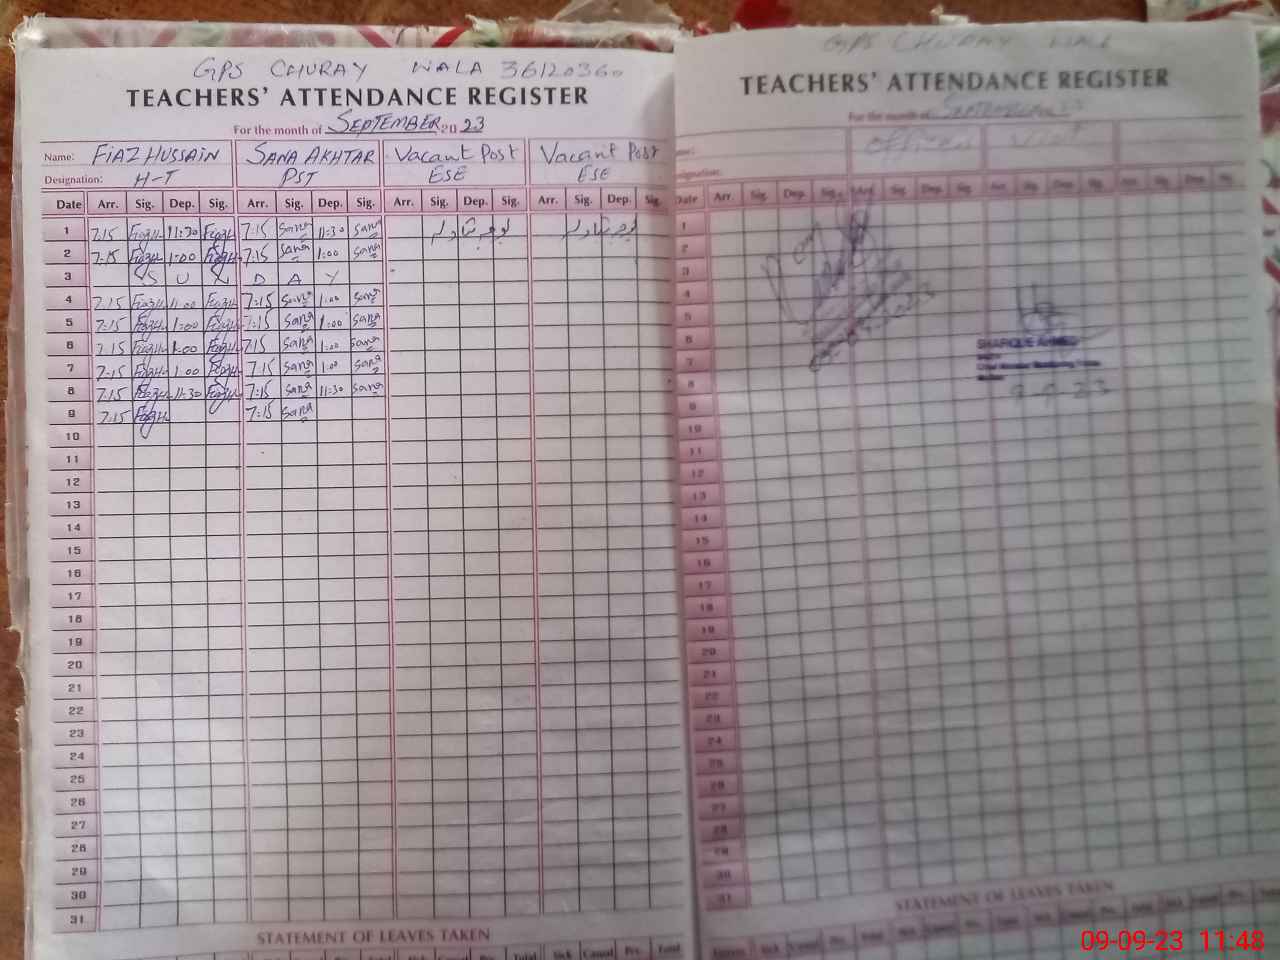 GPS CHURAY WALA 36120360
TEACHERS' ATTENDANCE REGISTER
For the month of SEPTEMBER 2023
Name: FIAZ HUSSAIN SANA AKHTAR Vacant Post Vacant Post
Designation: H-T PST ESE ESE
Date Arr. Sig. Dep. Sig. Arr. Sig. Dep. Sig. Arr. Sig. Dep. Sig. Arr. Sig. Dep. Sig.
1 7:15 Fiaz H 11:30 Fiaz H 7:15 Sana 11:30 Sana
2 7:15 Fiaz H 1:00 Fiaz H 7:15 Sana 1:00 Sana
3 S U N D A Y
4 7:15 Fiaz H 1:00 Fiaz H 7:15 Sana 1:00 Sana
5 7:15 Fiaz H 1:00 Fiaz H 7:15 Sana 1:00 Sana
6 7:15 Fiaz H 1:00 Fiaz H 7:15 Sana 1:00 Sana
7 7:15 Fiaz H 1:00 Fiaz H 7:15 Sana 1:00 Sana
8 7:15 Fiaz H 11:30 Fiaz H 7:15 Sana 11:30 Sana
9 7:15 Fiaz H 7:15 Sana
10
11
12
13
14
15
16
17
18
19
20
21
22
23
24
25
26
27
28
29
30
31
STATEMENT OF LEAVES TAKEN
Sick Casual Prv. Total
GPS CHURAY WALA
TEACHERS' ATTENDANCE REGISTER
For the month of September 23
Officers Visit
Date Arr. Sig. Dep. Sig. Arr. Sig. Dep. Sig. Arr. Sig. Dep. Sig. Arr. Sig. Dep.
1
2
3
4
5
6
7
8
9
10
11
12
13
14
15
16
17
18
19
20
21
22
23
24
25
26
27
28
29
30
31
SHARIQUE AHMED
9-9-23
STATEMENT OF LEAVES TAKEN
09-09-23 11:48